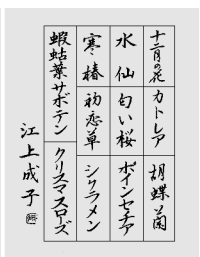 十二月の花
カトレア
胡蝶蘭
水仙
匂い桜
ポインセチア
寒椿
初恋草
シクラメン
蝦蛄葉サボテン
クリスマスローズ
江上成子